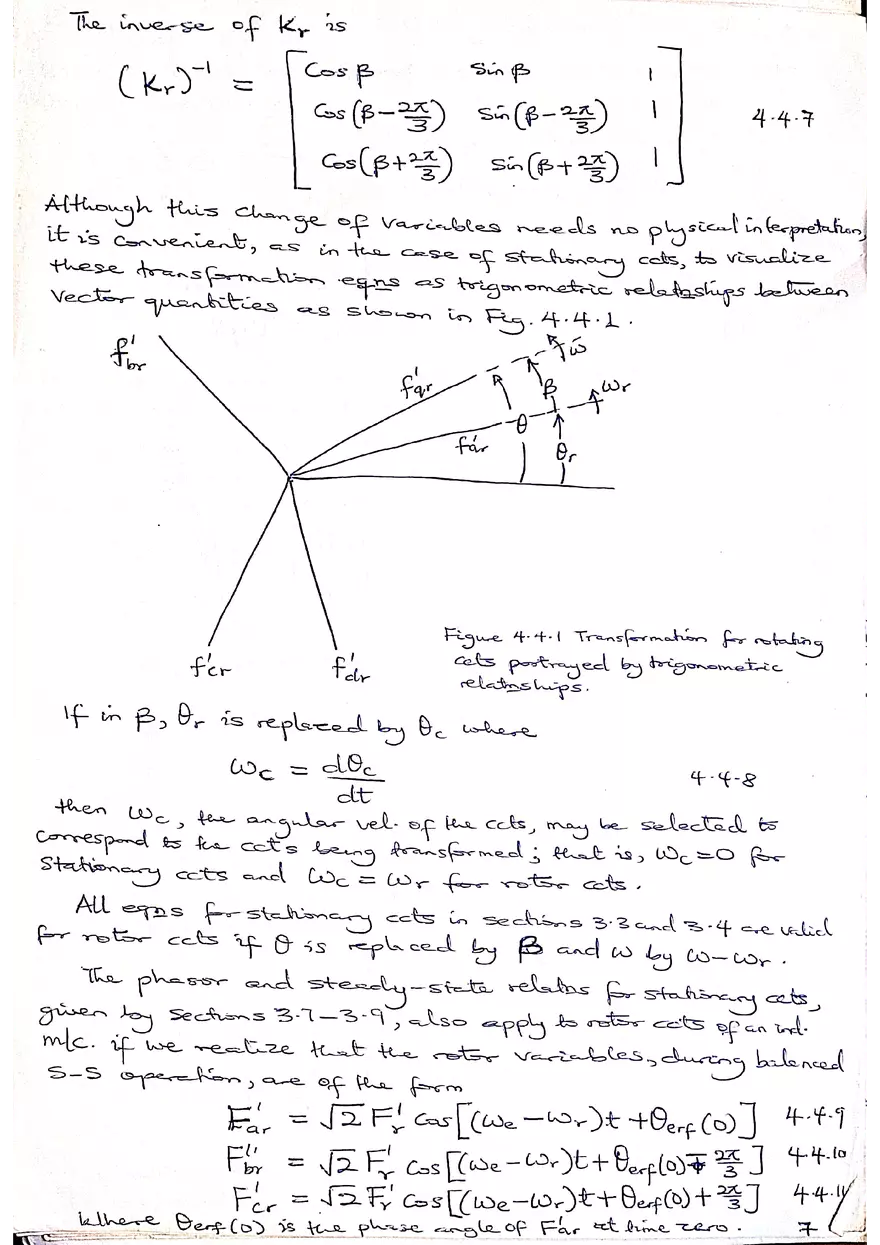 The inverse of Kr is
(Kr)⁻¹ = [ Cos β Sin β 1
Cos(β − 2π/3) Sin(β − 2π/3) 1
Cos(β + 2π/3) Sin(β + 2π/3) 1 ] 4.4.7
Although this change of variables needs no physical interpretation,
it is convenient, as in the case of stationary ccts, to visualize
these transformation eqns as trigonometric relatnships between
vector quantities as shown in Fig. 4.4.1.
f'br
f'qr
ω
β
ωr
θ
f'ar
θr
f'cr
f'dr
Figure 4.4.1 Transformation for rotating
ccts portrayed by trigonometric
relatnships.
If in β, θr is replaced by θc where
ωc = dθc/dt 4.4-8
then ωc, the angular vel. of the ccts, may be selected to
correspond to the cct's being transformed; that is, ωc = 0 for
Stationary ccts and ωc = ωr for rotor ccts.
All eqns for stationary ccts in sections 3.3 and 3.4 are valid
for rotor ccts if θ is replaced by β and ω by ω−ωr.
The phasor and steady-state relatns for stationary ccts,
given by sections 3.7–3.9, also apply to rotor ccts of an ind.
m/c. if we realize that the rotor variables, during balanced
S-S operation, are of the form
F'ar = √2 F'r Cos[(ωe − ωr)t + θerf(0)] 4.4.9
F'br = √2 F'r Cos[(ωe − ωr)t + θerf(0) − 2π/3] 4.4.10
F'cr = √2 F'r Cos[(ωe − ωr)t + θerf(0) + 2π/3] 4.4.11
Where θerf(0) is the phase angle of F'ar at time zero. 7